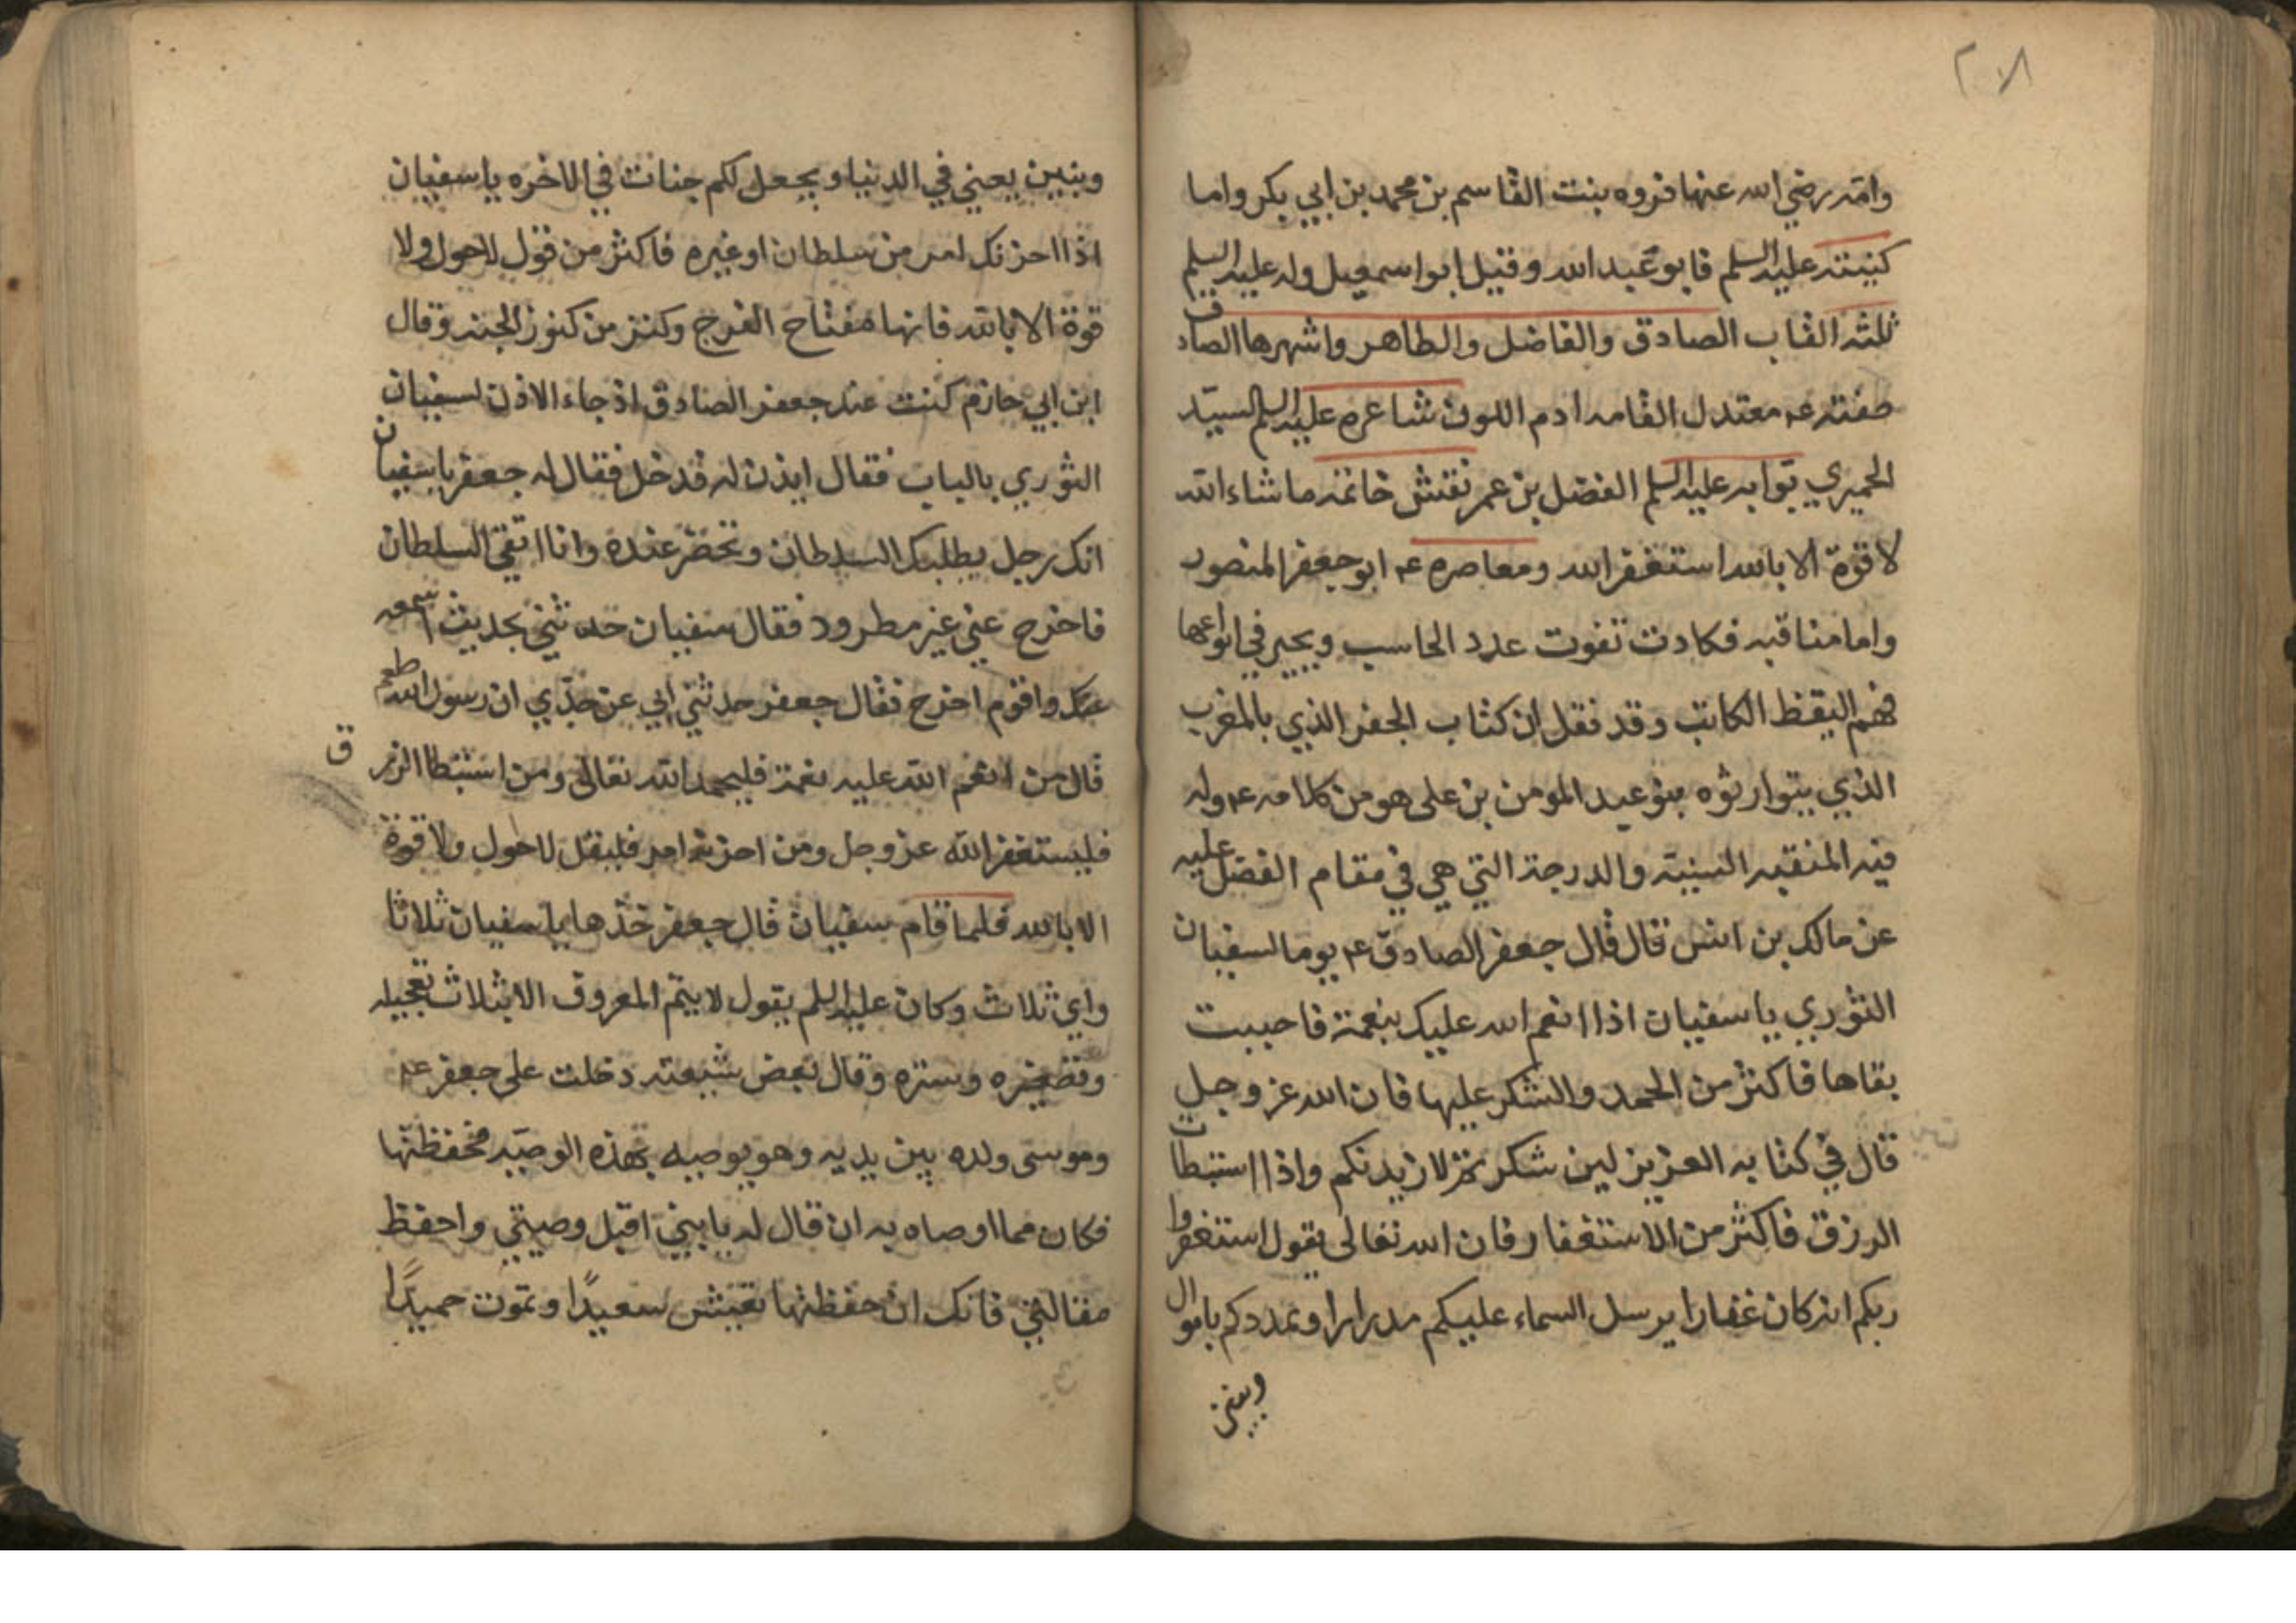 ٢٧٨
وامه رضي الله عنها فروه بنت القاسم بن محمد بن ابي بكر واما
كنيته عليه السلم فابو عبد الله وقيل ابو اسمعيل وله عليه السلم
ثلثه القاب الصادق والفاضل والطاهر واشهرها الصادق
صفته عه معتدل القامه ادم اللون شاعره عليه السلم السيد
الحميري بوابه عليه السلم الفضل بن عمر نقش خاتمه ما شاء الله
لا قوة الا بالله استغفر الله ومعاصره عه ابو جعفر المنصور
واما مناقبه فكادت تفوت عدد الحاسب ويحير في انواعها
فهم اليقظ الكاتب وقد نقل ان كتاب الجفر الذي بالمغرب
الذي يتوارثوه بنو عبد المومن بن على هو من كلامه عه وله
فيه المنقبه السنية والدرجة التي هي في مقام الفضل عليه
عن مالك بن انس قال قال جعفر الصادق عه يوما لسفيان
الثوري يا سفيان اذا انعم الله عليك بنعمة فاحببت
بقاها فاكثر من الحمد والشكر عليها فان الله عز وجل
قال في كتابه العزيز لين شكرتم لازيدنكم واذا استبطات
الرزق فاكثر من الاستغفار فان الله تعالى يقول استغفروا
ربكم انه كان غفارا يرسل السماء عليكم مدرارا ويمددكم باموال
وبنين
وبنين يعني في الدنيا ويجعل لكم جنات في الاخره يا سفيان
اذا احزنك امر من سلطان او غيره فاكثر من قول لا حول ولا
قوة الا بالله فانها مفتاح الفرج وكنز من كنوز الجنه وقال
ابن ابي حازم كنت عند جعفر الصادق اذ جاء الاذن لسفيان
الثوري بالباب فقال ايذن له فدخل فقال له جعفر يا سفيان
انك رجل يطلبك السلطان وتحضر عنده وانا اتقي السلطان
فاخرج عني غير مطرود فقال سفيان حدثني بحديث اسمعه
عنك واقوم اخرج فقال جعفر حدثني ابي عن جدي ان رسول الله
قال من انعم الله عليه نعمة فليحمد الله تعالى ومن استبطا الرزق
فليستغفر الله عز وجل ومن احزنه امر فليقل لا حول ولا قوة
الا بالله فلما قام سفيان قال جعفر خذها يا سفيان ثلاثا
واي ثلاث وكان عليه السلم يقول لا يتم المعروف الا بثلاث تعجيله
وتصغيره وستره وقال بعض شيعته دخلت على جعفر عه
وموسى ولده بين يديه وهو يوصيه بهذه الوصيه فحفظتها
فكان مما اوصاه به ان قال له يا بني اقبل وصيتي واحفظ
مقالتي فانك ان حفظتها تعيش سعيدًا وتموت حميدًا